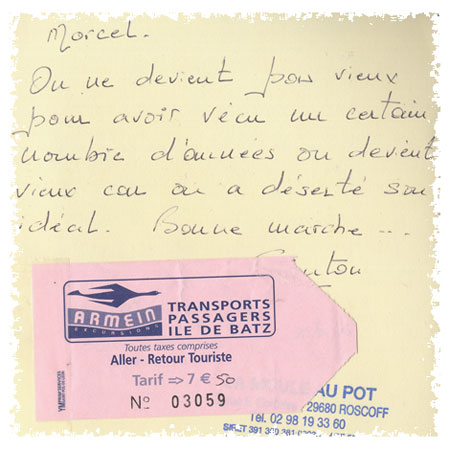 Marcel.
On ne devient pas vieux
pour avoir vécu un certain
nombre d'années on devient
vieux car on a déserté son
idéal. Bonne marche ...
ARMEIN
EXCURSIONS
TRANSPORTS
PASSAGERS
ILE DE BATZ
Toutes taxes comprises
Aller - Retour Touriste
Tarif ⇒ 7 € 50
No 03059
AU POT
29680 ROSCOFF
Tél. 02 98 19 33 60
SIRET 391 390 381